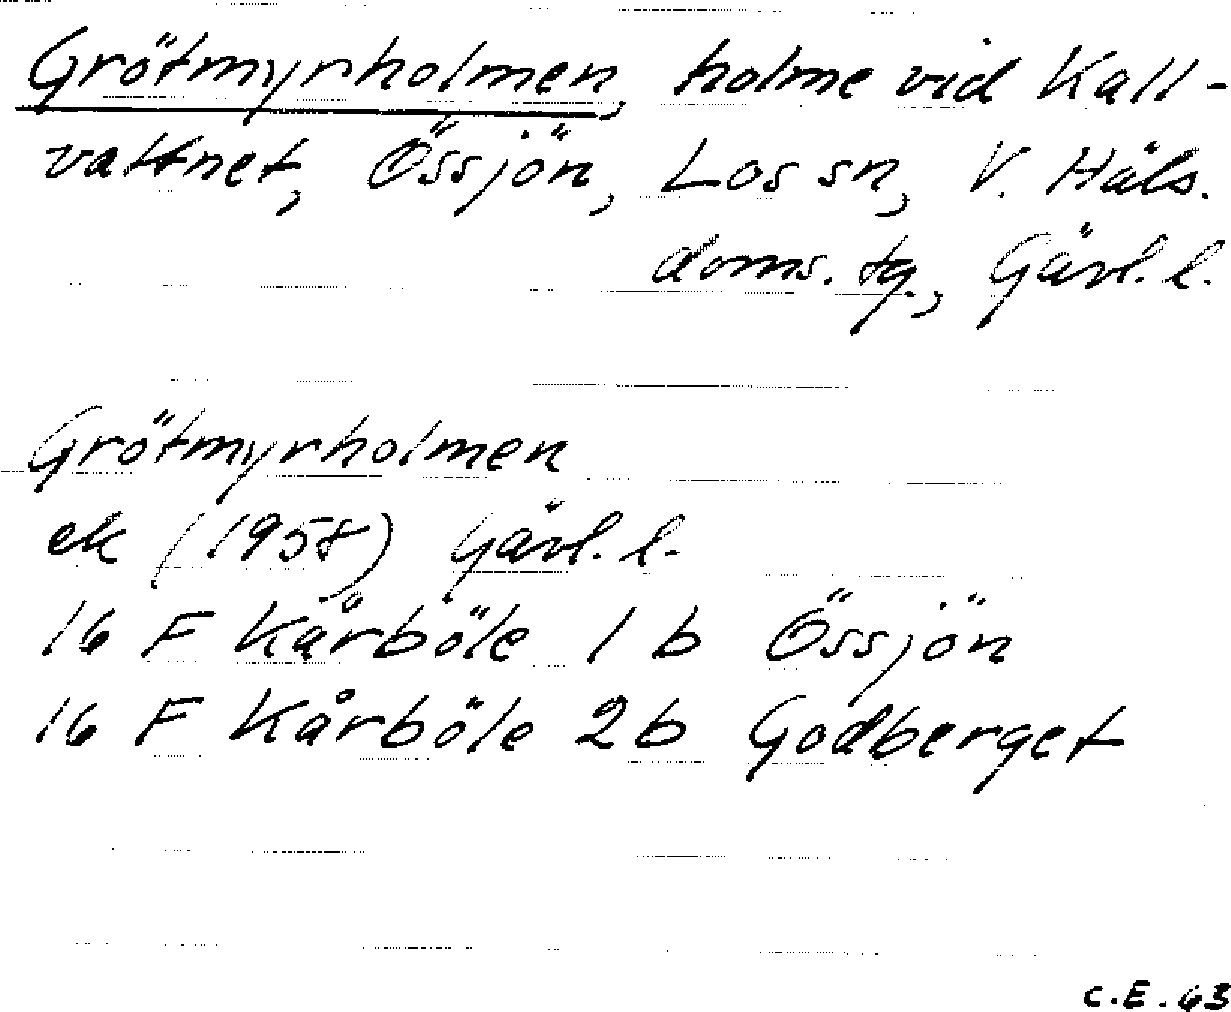 Grötmyrholmen, holme vid Kall-
vattnet, Össjön, Los sn, V. Häls.
doms. tg., Gävl. l.
Grötmyrholmen
ek (1958) Gävl. l.
16 F Kårböle 1 b Össjön
16 F Kårböle 2b Godberget
C.E. 63